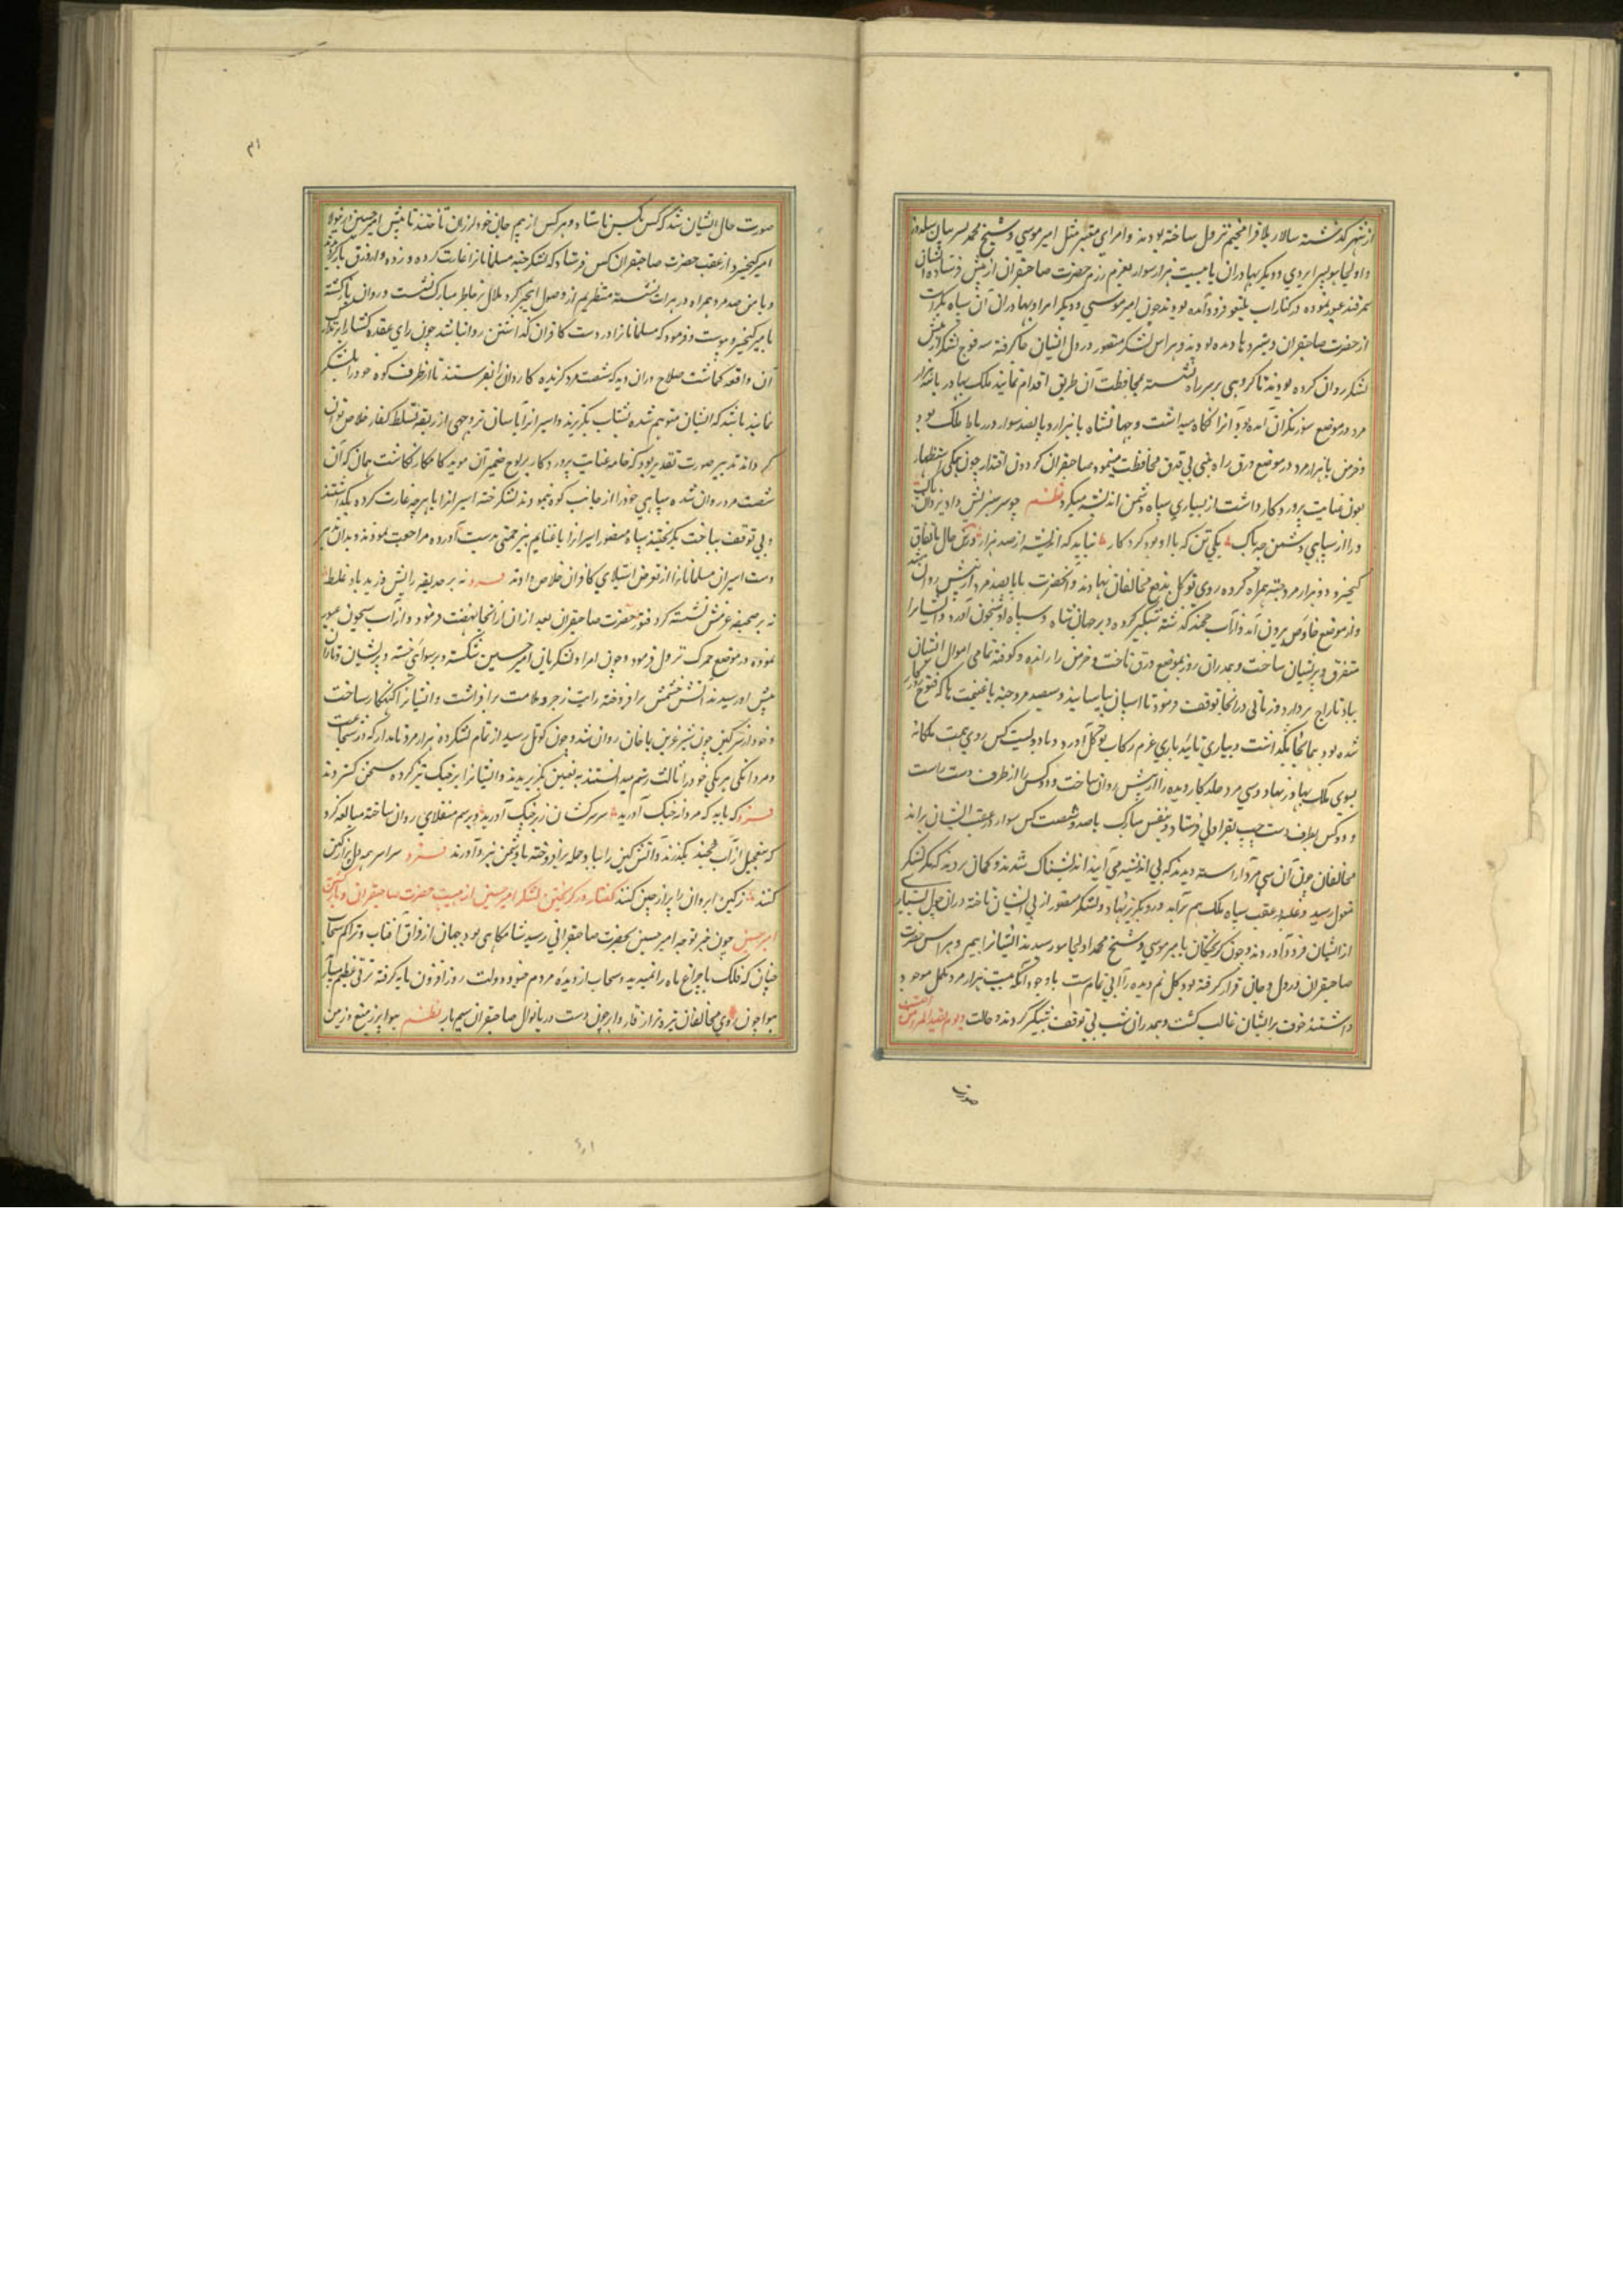 از شهر گذشته سالار بلاق را مخیم نزول ساخته بودند و امرای معتبر مثل امیر موسی و شیخ محمد پسر بیان سلدوز
و اولجایتو اپردی و دیگر بهادران با بیست هزار سوار بعزم رزم حضرت صاحبقران از پیش فرستاده ایشان
سمرقند عبور نموده در کنار اب بلیغو فرود آمده بودند چون امیر موسی و دیگر امرا و بهادران آن سپاه بکرات
از حضرت صاحبقران دستبردها دیده بودند و هراس لشکر منصور در دل ایشان جا گرفته سه فوج لشکر از پیش
لشکر روان کرده بودند تا کروهی بر سر راه نشسته بمحافظت آن طریق اقدام نمایند ملک بهادر با سه هزار
مرد در موضع سوزنکران آمده بود و آنرا نگاه میداشت و جهانشاه با هزار و پانصد سوار در رباط ملک بود
و خرمن با هزار مرد در موضع درق راه بخی بی قرق محافظت مینمود صاحبقران کردون اقتدار چون همگی استظهار
بعون عنایت پروردکار داشت از بسیاری سپاه دشمن اندیشه نمیکرد نظم چو سر سبزیش داد یزدان پاک
ورا از سپاهی دشمن چه باک یکی تن که با او بود کردکار نباید که اندیشد از صد هزار درین حال باتفاق
کیخسرو دو هزار مرد جته همراه کرده روی توکل بدفع مخالفان نهادند و آنحضرت با پانصد مرد از پیش روان شد
و از موضع خاوص بیرون آمد و از آب خجند گذشته شبگیر کرده و بر جهانشاه و سپاه او شبخون آورد و ایشانرا
متفرق و پریشان ساخت و بعد از آن روز بموضع درق تاخت و خرمن را رانده و کوفته تمامی اموال ایشان
بباد تاراج برداد و زمانی در آنجا توقف فرمود تا اسپان بیاسایند و سیصد مرد جته با غنیمت ها که فتوح روزگار
شده بود بمانجا بگذاشت و بیاری تایید باری عزم رکاب توکل آورد و با دویست کس روی همت ملکانه
بسوی ملک بهادر نهاد و سی مرد جلد کار دیده را از پیش روان ساخت و دو کس را از طرف دست راست
و دو کس بطرف دست چپ بقراولی فرستاد و بنفس مبارک با صد و شصت کس سوار در عقب ایشان براند
مخالفان چون آن سی مرد آراسته دیدند که بی اندیشه می آیند اندیشناک شدند و گمان بردند که مگر لشکر
مغول رسید و غلبه از عقب سپاه ملک هم برآمد و رو بگریز نهاد و لشکر منصور از پی ایشان تاخته در آن چول بسیار
از ایشان فرود آوردند و چون گریختکان بامیر موسی و شیخ محمد و اولجایتو رسیدند ایشانرا بیم و هراس حضرت
صاحبقران در دل و جان قرار گرفته بود و کل نم دیده را آبی تمام است با وجود آنکه بیست هزار مرد مکمل موجود
داشتند خوف بر ایشان غالب گشت و بعد از آن شب بی توقف شبگیر کردند و حالت
صورت
صورت حال ایشان شد که کس بکس نایستاد و هر کس از بیم جان خود لرزان تاختند تا پیش امیر حسین
امیر کیخسرو از عقب حضرت صاحبقران کس فرستاد که لشکر جته مسلمانانرا غارت کرده و زده و از درق باز گردیدند
و با من صد مرد همراه در برات نشسته منتظریم از وصول این خبر گرد ملال بر خاطر مبارک نشست و روان باز گشته
بامیر کیخسرو پیوست و فرمود که مسلمانانرا در دست کافران گذاشتن روا نباشد چون رای عقده کشا بر تدارک
آن واقعه گماشت صلاح در آن دید که شصت مرد گزیده کاردانرا بفرستند تا از طرف کوه خود را بلشکر
نمایند باشد که ایشان متوهم شده بشتاب بگریزند و اسیرانرا بآسان تر وجهی از ربقه تسلط کفار خلاص توان
کرد و اند تدبیر صورت تقدیر بود که خامه عنایت پروردکار بر لوح ضمیر آن موید کامکار نگاشت همان که آن
شصت مرد روان شده سیاهی خود را از جانب کوه نمودند لشکر جته اسیرانرا با هر چه غارت کرده بگذاشتند
و بی توقف بتاخت بگریختند سپاه منصور اسیرانرا با غنایم بی زحمتی بدست آورده مراجعت نمودند و بدان تدبیر
دست اسیران مسلمانانرا از تعرض استیلای کافران خلاص دادند فرد نه بر حدیقه رایش وزید باد غلط
نه بر صحیفه عزمش نشسته گرد فتور حضرت صاحبقران بعد از آن از آنجا نهضت فرمود و از آب سیحون عبور
نموده در موضع جمرک نزول فرمود و چون امرا و لشکریان امیر حسین شکسته و برسوایی خسته و پریشان و تالان
پیش او رسیدند آتش خشمش برافروخته رایت زجر و ملامت برافراشت و ایشانرا گنهکار ساخت
و خود از سر کین چون شیر عرین با خان روان شد و چون کوتل رسید از تمام لشکر ده هزار مرد نامدار که در شجاعت
و مردانگی هر یکی خود را ثالث رستم میدانستند به تعیین بگزیریدند و ایشانرا بر جنگ تیز کرده سخن گستردند
فرد که باید که مردانه جنگ آورید سر سرکشان زیر چنگ آورید و برسم منقلای روان ساخته مبالغه کرد
که بتعجیل از آب خجند بگذرند و آتش کین را بباد حمله برافروخته با دشمن نبرد آورند فرد سراسر همه دل پر از کین
کنند ز کین ابروان را پر از چین کنند گفتار در گریختن لشکر امیر حسین از هیبت حضرت صاحبقرانی و بازگشتن
امیر حسین چون خبر توجه امیر حسین بحضرت صاحبقرانی رسید شامگاهی بود جهان از فراق آفتاب و تراکم سحاب
چنان که فلک با چراغ ماه راه نمیدید و سحاب از دیده مردم
هوا چون روی مخالفان تیره تر از قار و ابر چون دست دریانوال صاحبقران سیم بار نظم هوا پر ز میغ و زمین